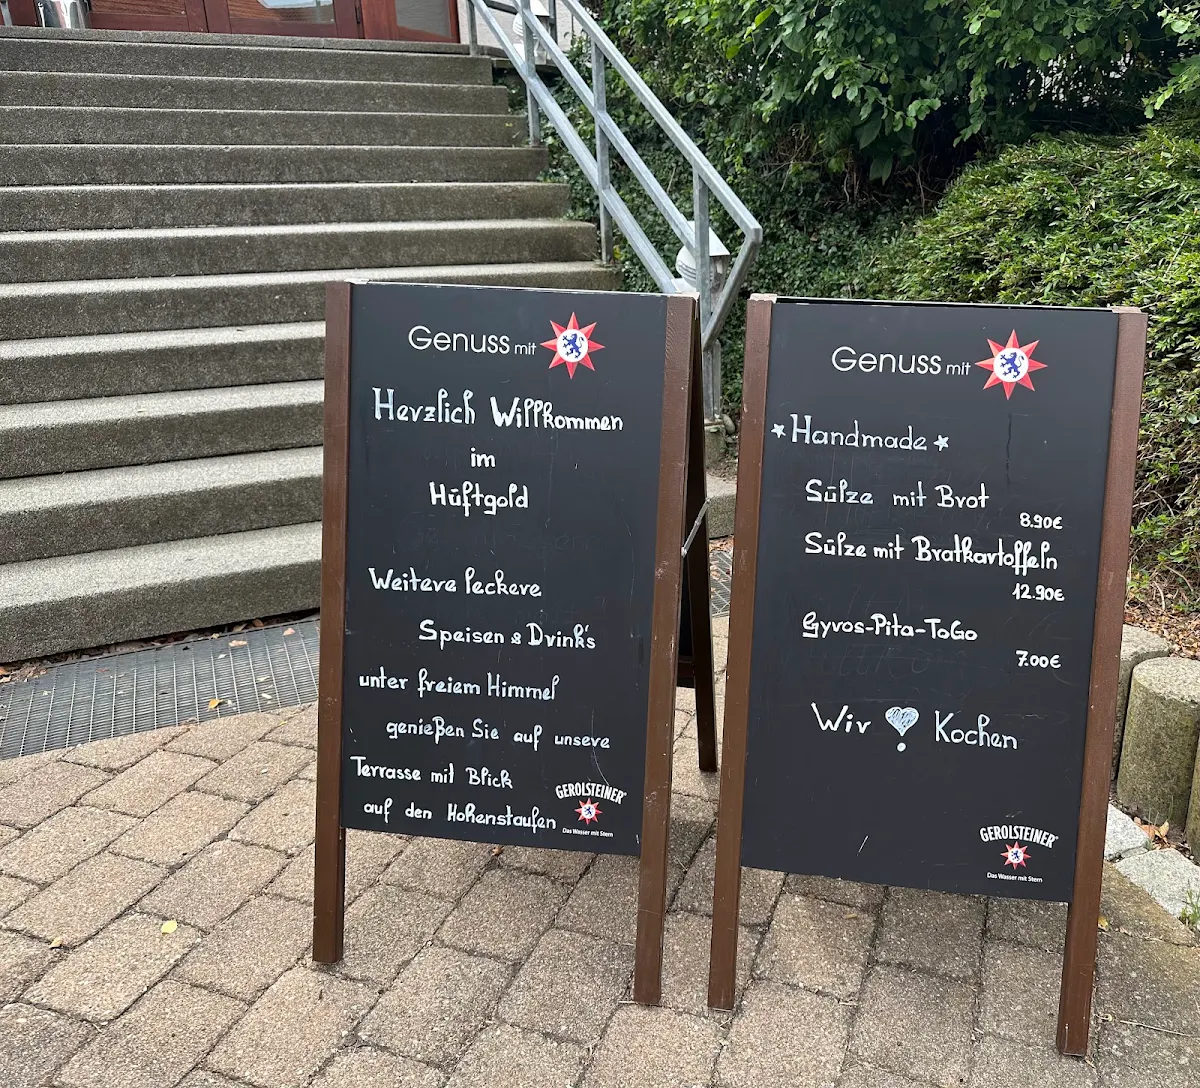 Genuss mit
Herzlich Willkommen
im
Hüftgold
Weitere leckere
Speisen & Drink's
unter freiem Himmel
genießen Sie auf unsere
Terrasse mit Blick
auf den Hohenstaufen
GEROLSTEINER
Das Wasser mit Stern
Genuss mit
* Handmade *
Sülze mit Brot
8.90€
Sülze mit Bratkartoffeln
12.90€
Gyros-Pita-ToGo
7.00€
Wir Kochen
GEROLSTEINER
Das Wasser mit Stern